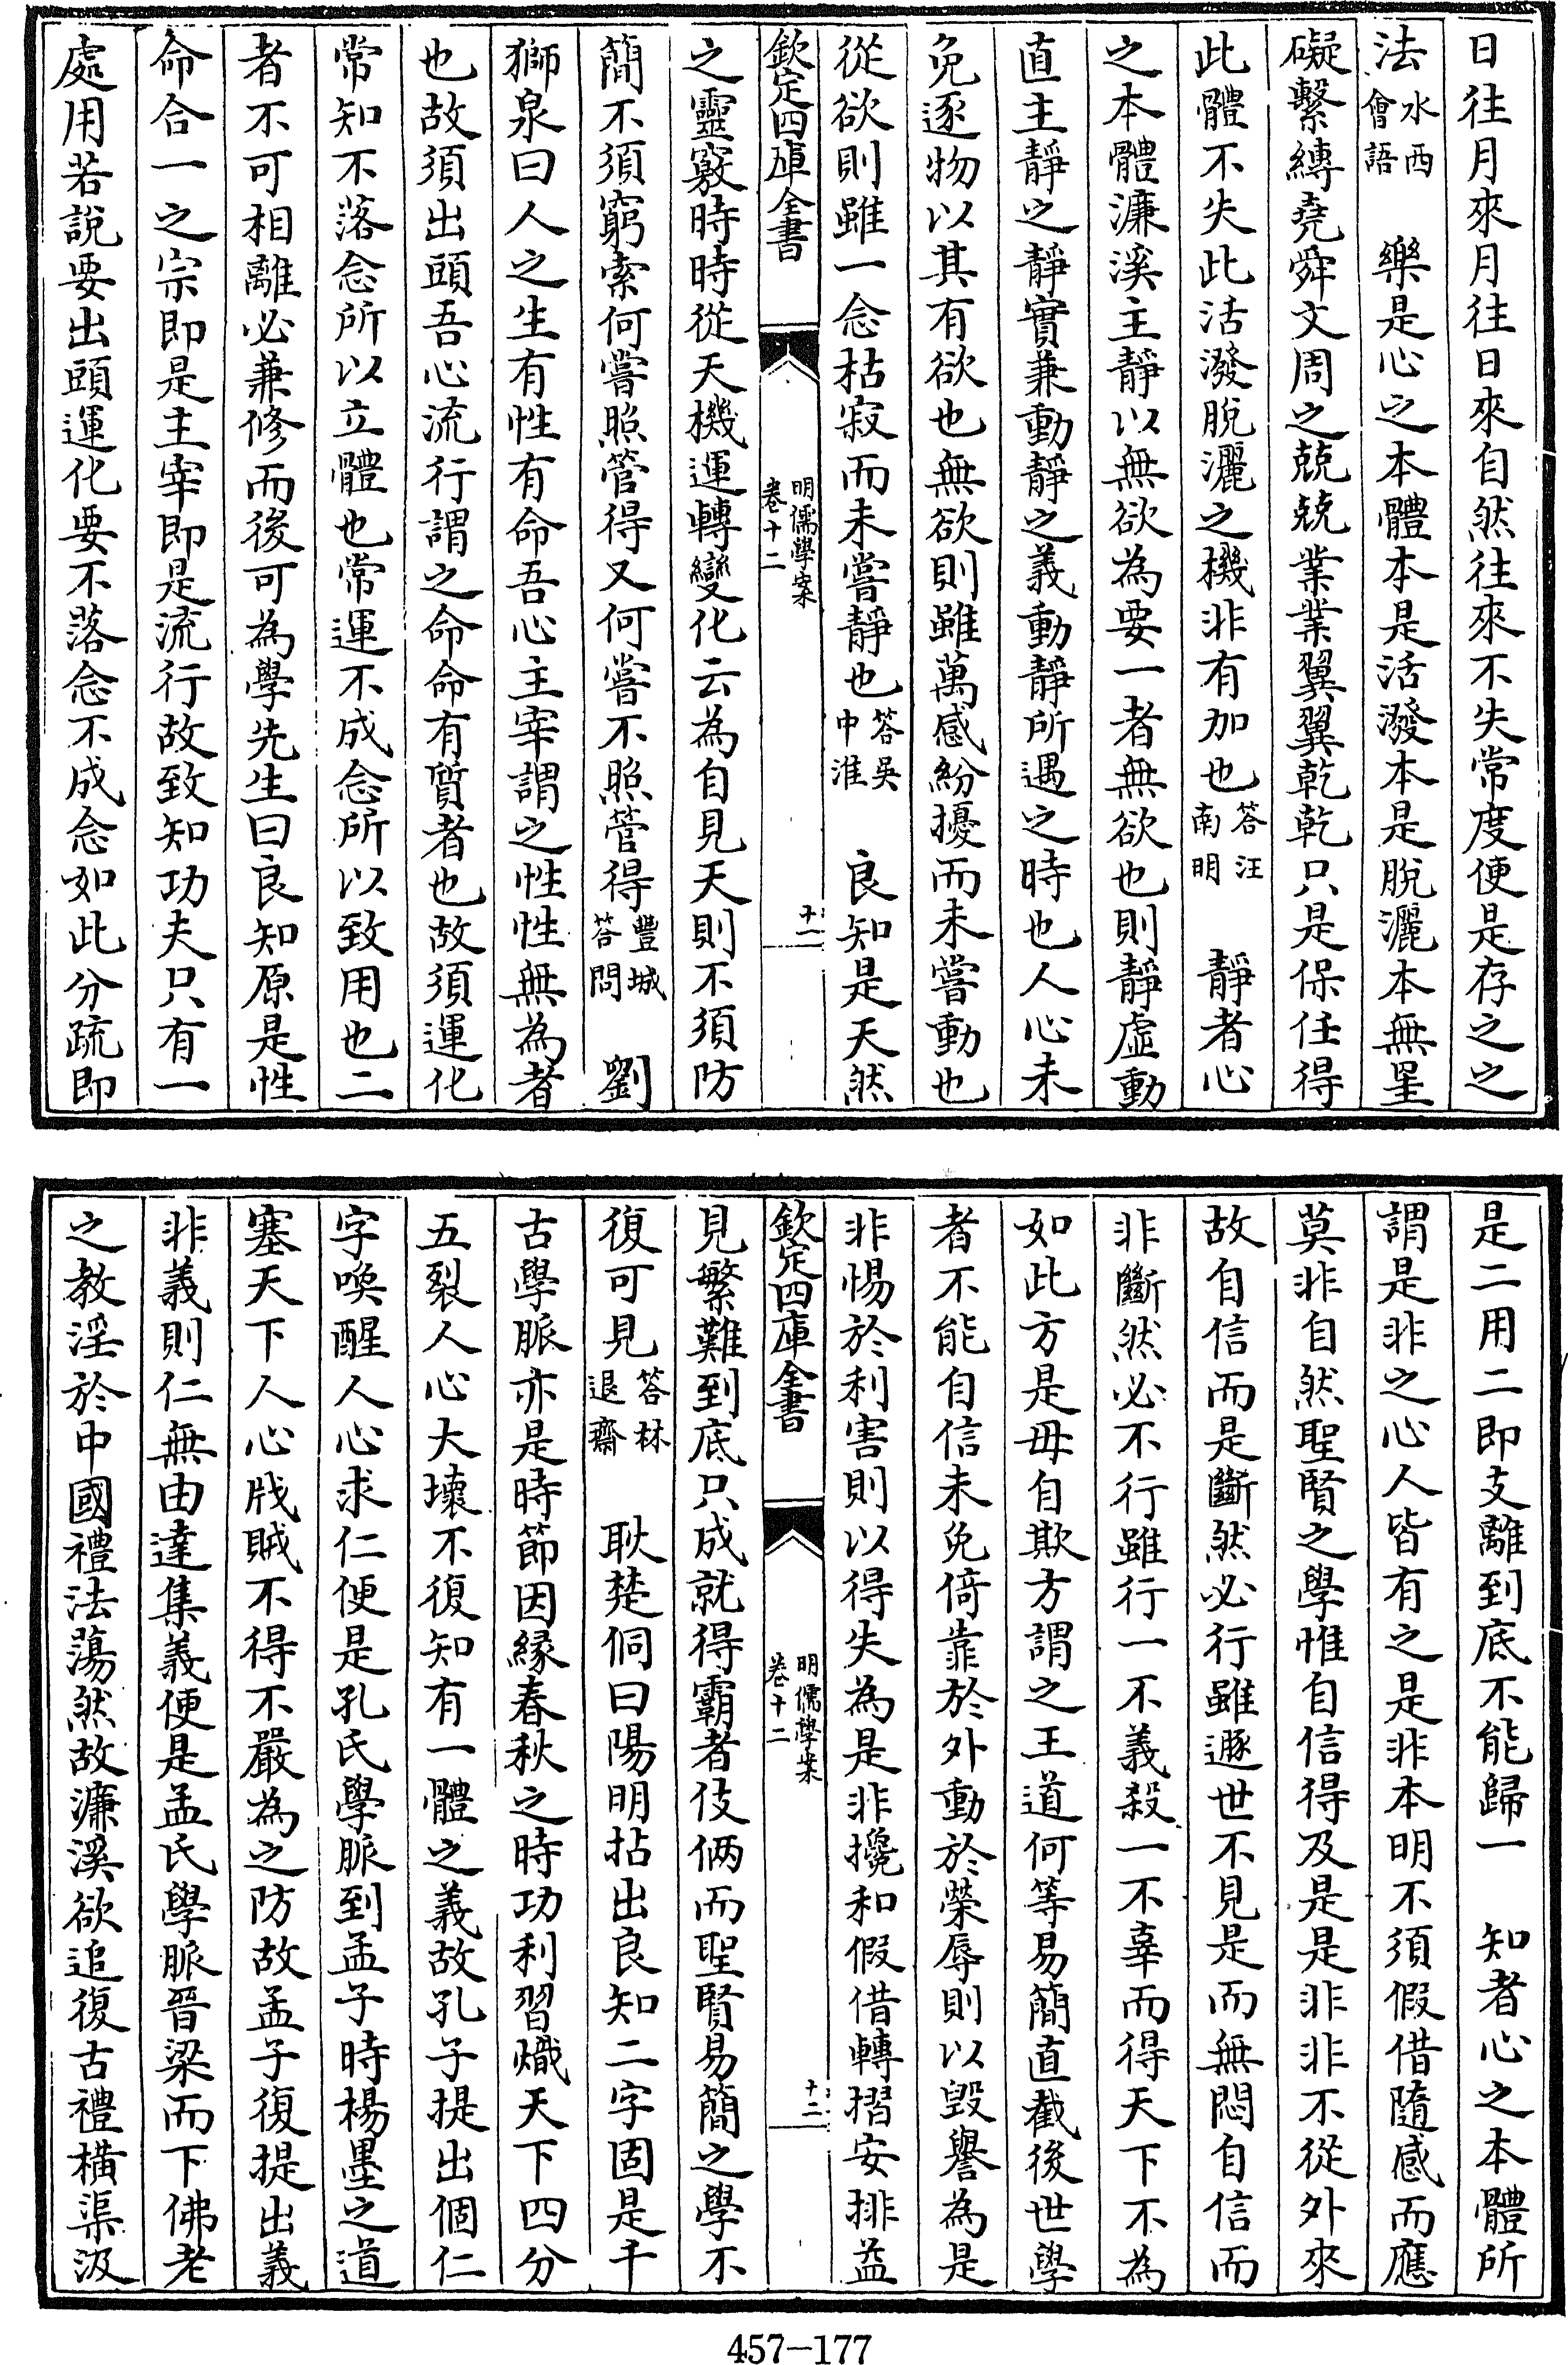 日往月來月往日來自然往來不失常度便是存之之
法水西會語　樂是心之本體本是活潑本是脫灑本無罣
礙繫縛堯舜文周之兢兢業業翼翼乾乾只是保任得
此體不失此活潑脫灑之機非有加也答汪南明　靜者心
之本體濂溪主靜以無欲為要一者無欲也則靜虛動
直主靜之靜實兼動靜之義動靜所遇之時也人心未
免逐物以其有欲也無欲則雖萬感紛擾而未嘗動也
從欲則雖一念枯寂而未嘗靜也答吳中淮　良知是天然
欽定四庫全書　明儒學案卷十二　十一
之靈竅時時從天機運轉變化云為自見天則不須防
簡不須窮索何嘗照管得又何嘗不照管得豐城答問　劉
獅泉曰人之生有性有命吾心主宰謂之性性無為者
也故須出頭吾心流行謂之命命有質者也故須運化
常知不落念所以立體也常運不成念所以致用也二
者不可相離必兼修而後可為學先生曰良知原是性
命合一之宗即是主宰即是流行故致知功夫只有一
處用若說要出頭運化要不落念不成念如此分疏即
是二用二即支離到底不能歸一　知者心之本體所
謂是非之心人皆有之是非本明不須假借隨感而應
莫非自然聖賢之學惟自信得及是是非非不從外來
故自信而是斷然必行雖遯世不見是而無悶自信而
非斷然必不行雖行一不義殺一不辜而得天下不為
如此方是毋自欺方謂之王道何等易簡直截後世學
者不能自信未免倚靠於外動於榮辱則以毀譽為是
非惕於利害則以得失為是非攙和假借轉摺安排益
欽定四庫全書　明儒學案卷十二　十二
見繁難到底只成就得霸者伎倆而聖賢易簡之學不
復可見答林退齋　耿楚侗曰陽明拈出良知二字固是千
古學脈亦是時節因緣春秋之時功利習熾天下四分
五裂人心大壞不復知有一體之義故孔子提出個仁
字喚醒人心求仁便是孔氏學脈到孟子時楊墨之道
塞天下人心戕賊不得不嚴為之防故孟子復提出義
非義則仁無由達集義便是孟氏學脈晉梁而下佛老
之教淫於中國禮法蕩然故濂溪欲追復古禮橫渠汲
457-177